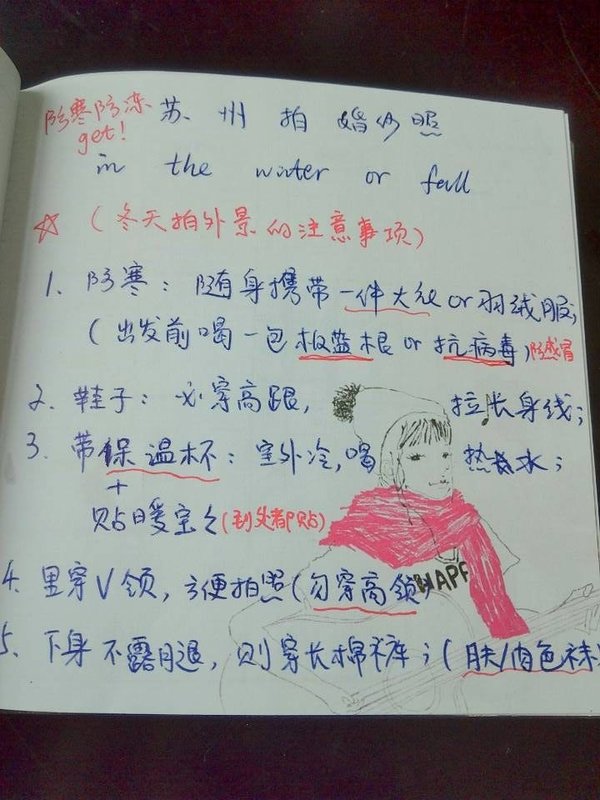 防寒防冻 get! 苏州拍婚纱照
in the winter or fall
☆(冬天拍外景的注意事项)
1、防寒:随身携带一件大衣or羽绒服;
(出发前喝一包板蓝根or抗病毒)防感冒
2、鞋子:必穿高跟,拉长身线;
3、带保温杯:室外冷,喝热水;
+
贴暖宝宝(到处都贴)
HAPP
4、里穿V领,方便拍照(勿穿高领)
5、下身不露腿,则穿长棉裤;(肤/肉色袜